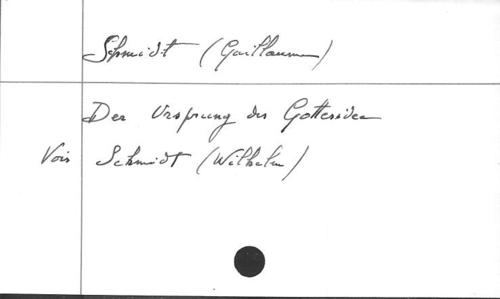 Schmidt (Guillaume)
Der Ursprung der Gottesidee
Voir Schmidt (Wilhelm)